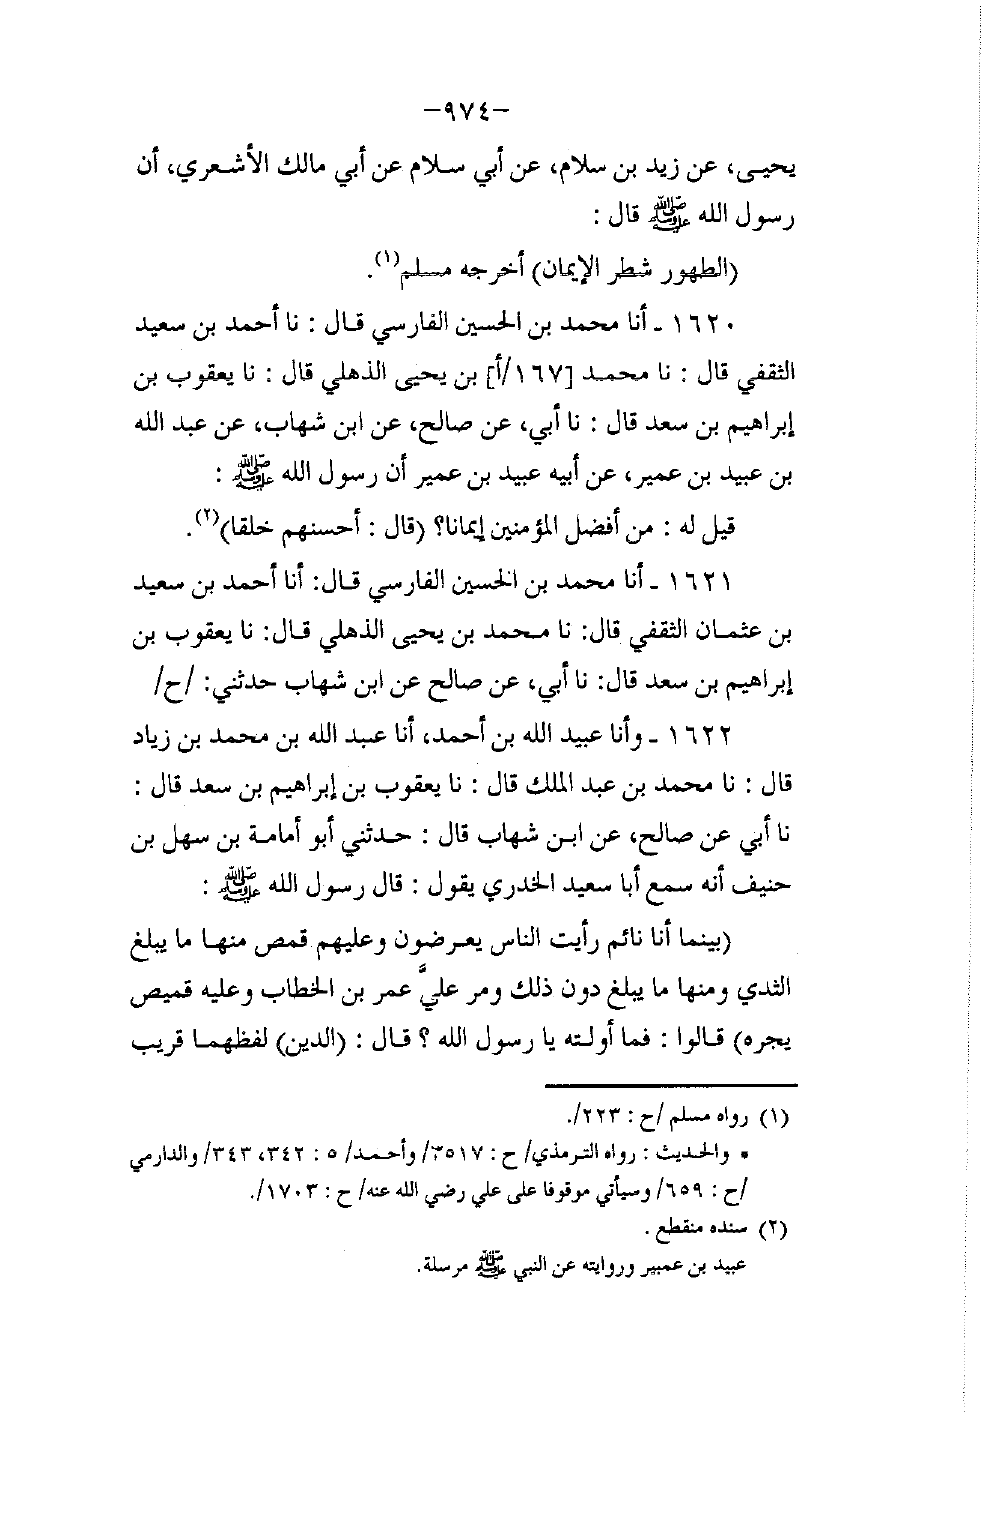 -٩٧٤-
يحيى، عن زيد بن سلام، عن أبي سلام عن أبي مالك الأشعري، أن
رسول الله ﷺ قال :
(الطهور شطر الإيمان) أخرجه مسلم(١).
١٦٢٠ ـ أنا محمد بن الحسين الفارسي قال : نا أحمد بن سعيد
الثقفي قال : نا محمد [١٦٧/أ] بن يحيى الذهلي قال : نا يعقوب بن
إبراهيم بن سعد قال : نا أبي، عن صالح، عن ابن شهاب، عن عبد الله
بن عبيد بن عمير، عن أبيه عبيد بن عمير أن رسول الله ﷺ :
قيل له : من أفضل المؤمنين إيمانا؟ (قال : أحسنهم خلقا)(٢).
١٦٢١ ـ أنا محمد بن الحسين الفارسي قال: أنا أحمد بن سعيد
بن عثمان الثقفي قال: نا محمد بن يحيى الذهلي قال: نا يعقوب بن
إبراهيم بن سعد قال: نا أبي، عن صالح عن ابن شهاب حدثني: /ح/
١٦٢٢ ـ وأنا عبيد الله بن أحمد، أنا عبد الله بن محمد بن زياد
قال : نا محمد بن عبد الملك قال : نا يعقوب بن إبراهيم بن سعد قال :
نا أبي عن صالح، عن ابن شهاب قال : حدثني أبو أمامة بن سهل بن
حنيف أنه سمع أبا سعيد الخدري يقول : قال رسول الله ﷺ :
(بينما أنا نائم رأيت الناس يعرضون وعليهم قمص منها ما يبلغ
الثدي ومنها ما يبلغ دون ذلك ومر عليَّ عمر بن الخطاب وعليه قميص
يجره) قالوا : فما أولته يا رسول الله ؟ قال : (الدين) لفظهما قريب
(١) رواه مسلم /ح : ٢٢٣/.
• والحديث : رواه الترمذي/ ح : ٣٥١٧/ وأحمد/ ٥ : ٣٤٢، ٣٤٣/ والدارمي
/ح : ٦٥٩/ وسيأتي موقوفا على علي رضي الله عنه/ ح : ١٧٠٣/.
(٢) سنده منقطع .
عبيد بن عمير وروايته عن النبي ﷺ مرسلة.